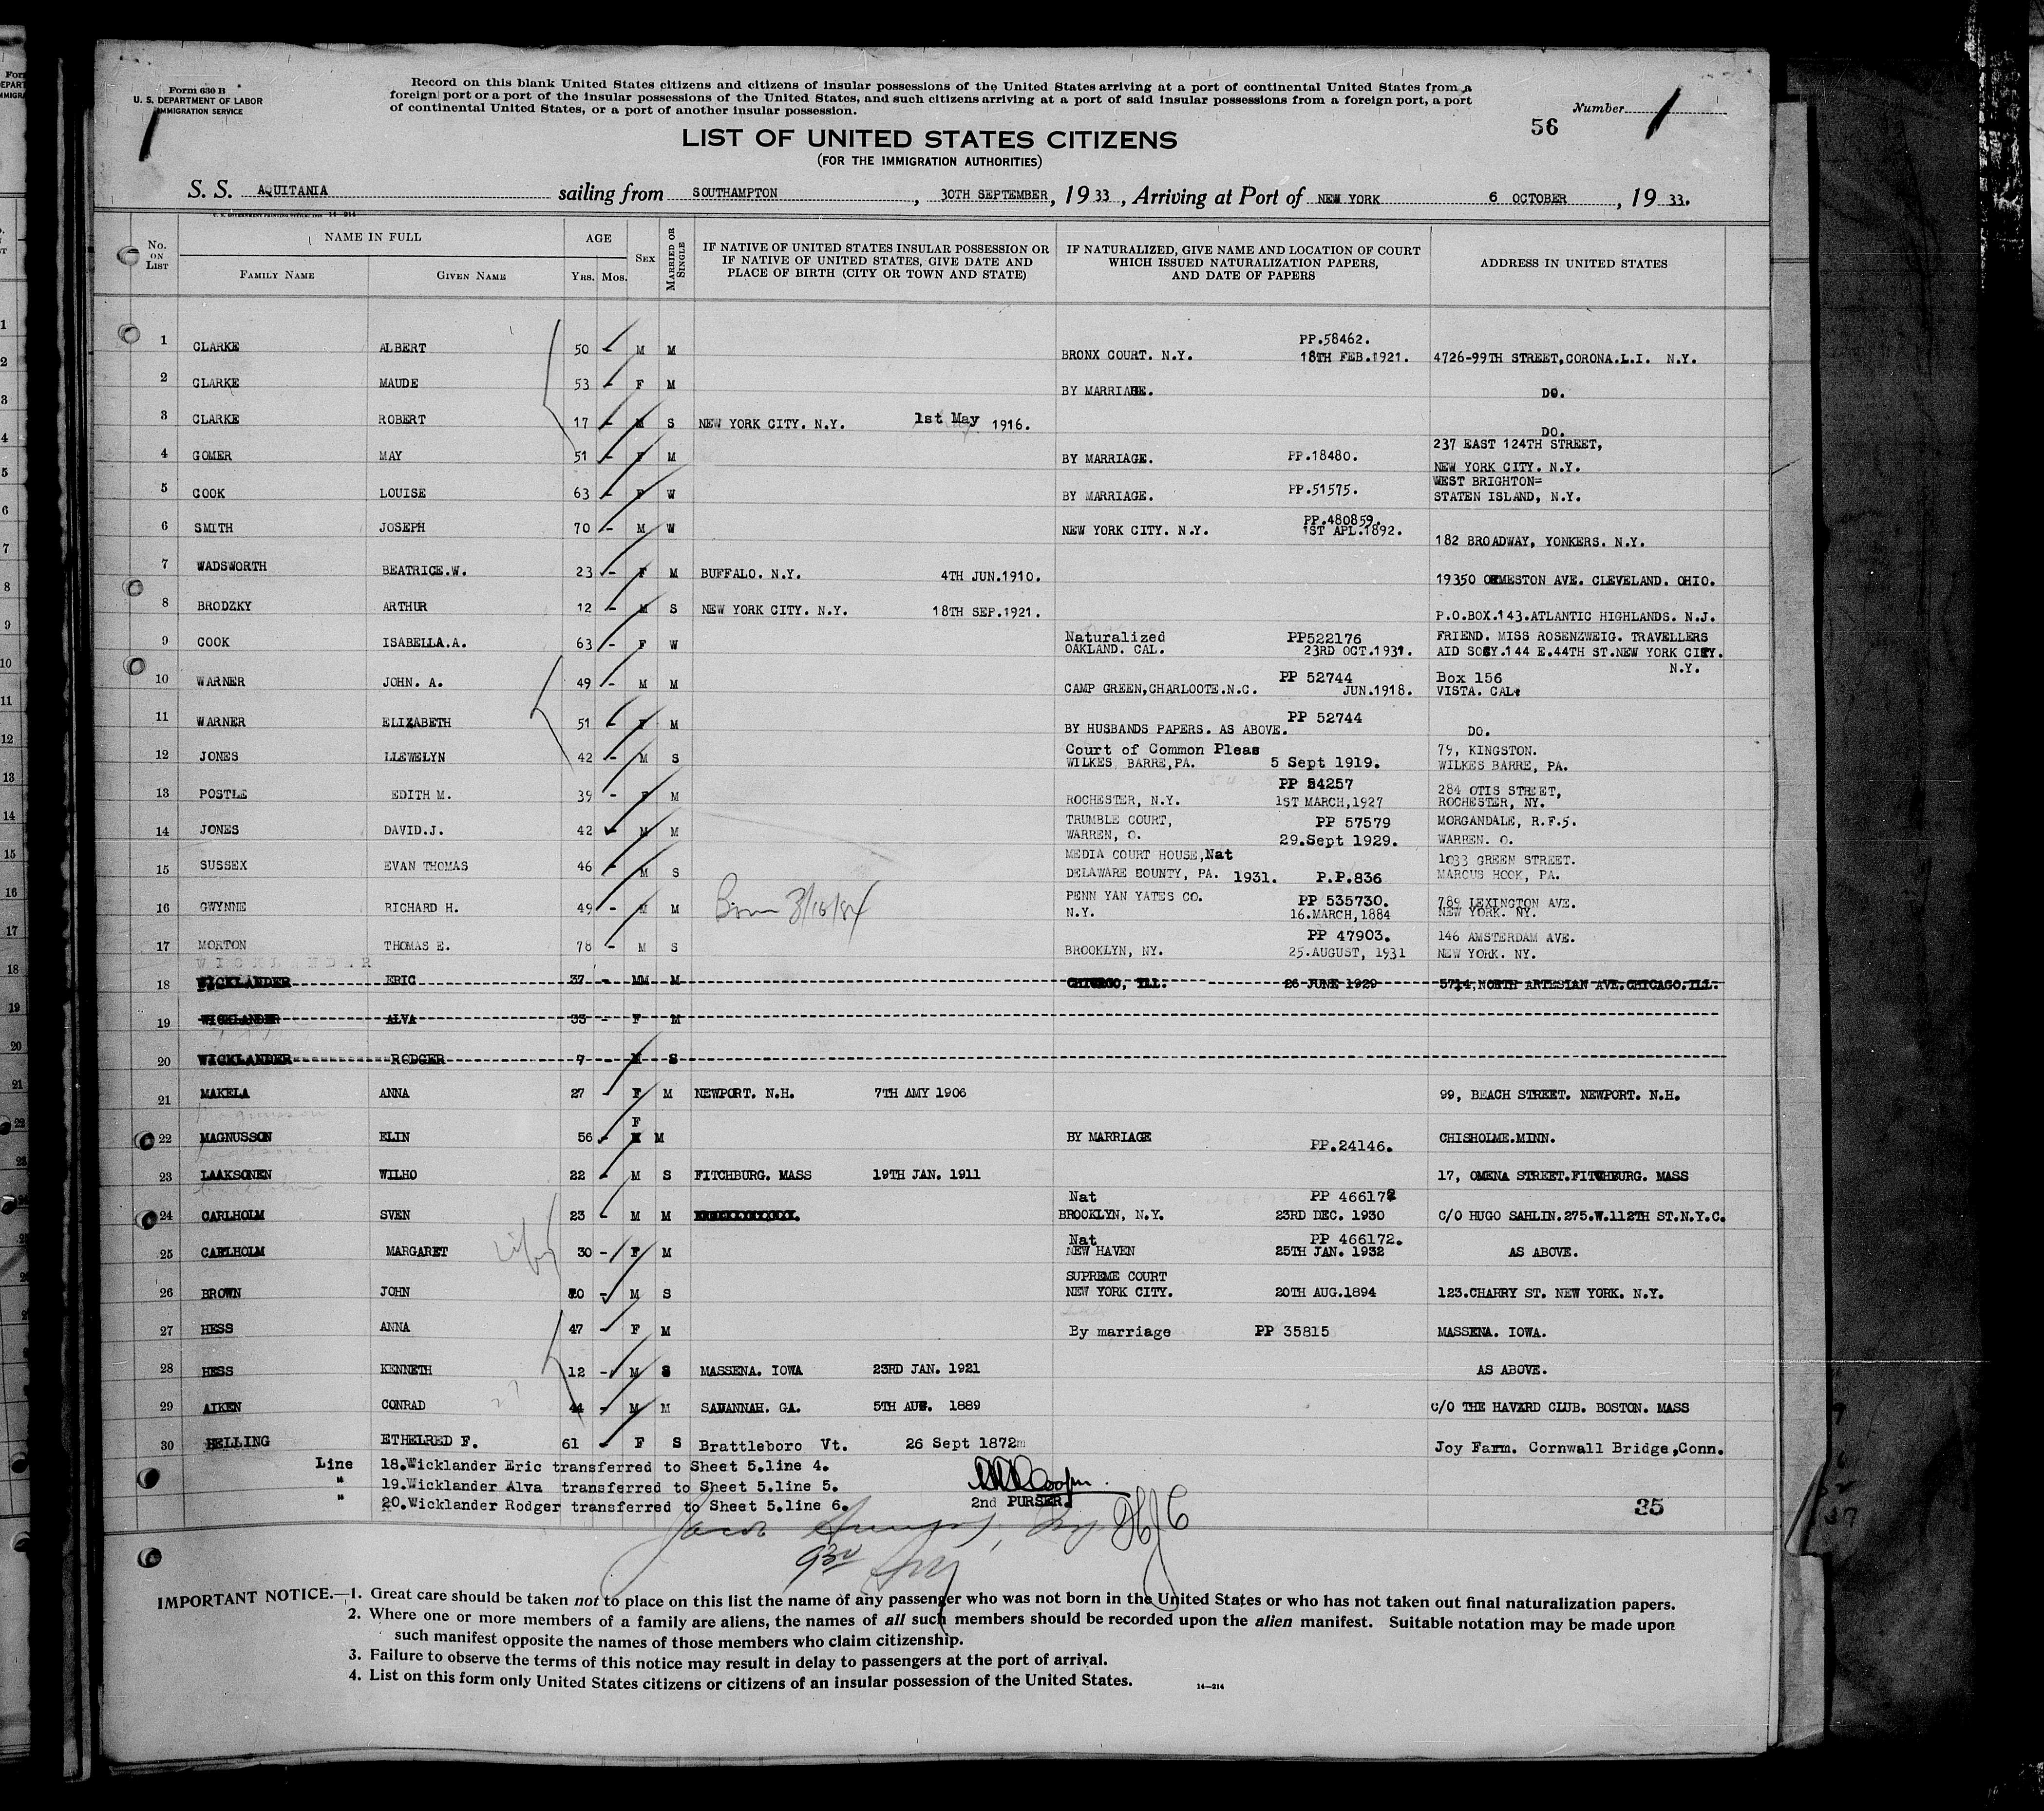 Form 630 B
U. S. DEPARTMENT OF LABOR
IMMIGRATION SERVICE
Record on this blank United States citizens and citizens of insular possessions of the United States arriving at a port of continental United States from a
foreign port or a port of the insular possessions of the United States, and such citizens arriving at a port of said insular possessions from a foreign port, a port
of continental United States, or a port of another insular possession.
Number 1
1
56
LIST OF UNITED STATES CITIZENS
(FOR THE IMMIGRATION AUTHORITIES)
S. S. AQUITANIA sailing from SOUTHAMPTON, 30TH SEPTEMBER, 1933, Arriving at Port of NEW YORK 6 OCTOBER, 1933.
No. ON LIST NAME IN FULL FAMILY NAME GIVEN NAME AGE YRS. MOS. SEX MARRIED OR SINGLE
IF NATIVE OF UNITED STATES INSULAR POSSESSION OR IF NATIVE OF UNITED STATES, GIVE DATE AND PLACE OF BIRTH (CITY OR TOWN AND STATE)
IF NATURALIZED, GIVE NAME AND LOCATION OF COURT WHICH ISSUED NATURALIZATION PAPERS, AND DATE OF PAPERS
ADDRESS IN UNITED STATES
1 CLARKE ALBERT 50 - M M BRONX COURT. N.Y. PP.58462. 18TH FEB.1921. 4726-99TH STREET,CORONA.L.I. N.Y.
2 CLARKE MAUDE 53 - F M BY MARRIAGE. DO.
3 CLARKE ROBERT 17 - M S NEW YORK CITY. N.Y. 1st May 1916. DO.
4 GOMER MAY 51 - F M BY MARRIAGE. PP.18480. 237 EAST 124TH STREET, NEW YORK CITY. N.Y.
5 COOK LOUISE 63 - F W BY MARRIAGE. PP.51575. WEST BRIGHTON= STATEN ISLAND, N.Y.
6 SMITH JOSEPH 70 - M W NEW YORK CITY. N.Y. PP.480859. 1ST APL.1892. 182 BROADWAY, YONKERS. N.Y.
7 WADSWORTH BEATRICE.W. 23 - F M BUFFALO. N.Y. 4TH JUN.1910. 19350 ORMESTON AVE. CLEVELAND. OHIO.
8 BRODZKY ARTHUR 12 - M S NEW YORK CITY. N.Y. 18TH SEP.1921. P.O.BOX.143.ATLANTIC HIGHLANDS. N.J.
9 COOK ISABELLA.A. 63 - F W Naturalized OAKLAND. CAL. PP522176 23RD OCT.1931. FRIEND. MISS ROSENZWEIG. TRAVELLERS AID SOCY.144 E.44TH ST.NEW YORK CITY. N.Y.
10 WARNER JOHN. A. 49 - M M CAMP GREEN,CHARLOOTE.N.C. PP 52744 JUN.1918. Box 156 VISTA. CAL.
11 WARNER ELIZABETH 51 - F M BY HUSBANDS PAPERS. AS ABOVE. PP 52744 DO.
12 JONES LLEWELYN 42 - M S Court of Common Pleas WILKES BARRE,PA. 5 Sept 1919. 79, KINGSTON. WILKES BARRE, PA.
13 POSTLE EDITH M. 39 - F M ROCHESTER, N.Y. PP 54257 1ST MARCH,1927 284 OTIS STREET, ROCHESTER, NY.
14 JONES DAVID.J. 42 M M TRUMBLE COURT, WARREN, O. PP 57579 29.Sept 1929. MORGANDALE, R.F.5. WARREN. O.
15 SUSSEX EVAN THOMAS 46 - M S MEDIA COURT HOUSE,Nat DELAWARE COUNTY, PA. 1931. P.P.836 1033 GREEN STREET. MARCUS HOOK, PA.
16 GWYNNE RICHARD H. 49 - M M Born 3/16/84 PENN YAN YATES CO. N.Y. PP 535730. 16.MARCH,1884 789 LEXINGTON AVE. NEW YORK. NY.
17 MORTON THOMAS E. 78 - M S BROOKLYN, NY. PP 47903. 25.AUGUST, 1931 146 AMSTERDAM AVE. NEW YORK. NY.
WICKLANDER
18 WICKLANDER ERIC 37 - MM M CHICAGO, ILL. 26 JUNE 1929 5714,NORTH ARTESIAN AVE.CHICAGO.ILL.
19 WICKLANDER ALVA 33 - F M
20 WICKLANDER RODGER 7 - M S
21 MAKELA ANNA 27 - F M NEWPORT. N.H. 7TH AMY 1906 99, BEACH STREET. NEWPORT. N.H.
22 MAGNUSSON ELIN 56 - F M BY MARRIAGE PP.24146. CHISHOLME.MINN.
23 LAAKSONEN WILHO 22 - M S FITCHBURG. MASS 19TH JAN. 1911 17, OMENA STREET.FITCHBURG. MASS
24 CARLHOLM SVEN 23 - M M Nat BROOKLYN, N.Y. PP 466172 23RD DEC. 1930 C/O HUGO SAHLIN.275.W.112TH ST.N.Y.C.
25 CARLHOLM MARGARET 30 - F M Nat NEW HAVEN PP 466172. 25TH JAN. 1932 AS ABOVE.
26 BROWN JOHN - M S SUPREME COURT NEW YORK CITY. 20TH AUG.1894 123.CHARRY ST. NEW YORK. N.Y.
27 HESS ANNA 47 - F M By marriage PP 35815 MASSENA. IOWA.
28 HESS KENNETH 12 - M S MASSENA. IOWA 23RD JAN. 1921 AS ABOVE.
29 AIKEN CONRAD 44 - M M SAVANNAH. GA. 5TH AUG. 1889 C/O THE HAVARD CLUB. BOSTON. MASS
30 HELLING ETHELRED F. 61 - F S Brattleboro Vt. 26 Sept 1872 Joy Farm. Cornwall Bridge,Conn.
Line 18.Wicklander Eric transferred to Sheet 5.line 4.
" 19.Wicklander Alva transferred to Sheet 5.line 5.
" 20.Wicklander Rodger transferred to Sheet 5.line 6.
2nd PURSER.
35
Jacob
930
IMPORTANT NOTICE.—1. Great care should be taken not to place on this list the name of any passenger who was not born in the United States or who has not taken out final naturalization papers.
2. Where one or more members of a family are aliens, the names of all such members should be recorded upon the alien manifest. Suitable notation may be made upon
such manifest opposite the names of those members who claim citizenship.
3. Failure to observe the terms of this notice may result in delay to passengers at the port of arrival.
4. List on this form only United States citizens or citizens of an insular possession of the United States.
14—214